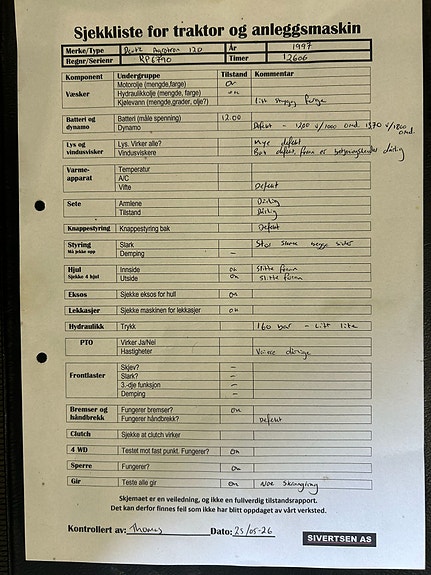 Sjekkliste for traktor og anleggsmaskin
Merke/Type Deutz Agrotron 120 År 1997
Regnr/Serienr RP6790 Timer 12606
Komponent Undergruppe Tilstand Kommentar
Væsker Motorolje (mengde,farge) OK
Hydraulikkolje (mengde, farge) OK
Kjølevann (mengde,grader, olje?) litt farge
Batteri og dynamo Batteri (måle spenning) 12.00
Dynamo Defekt - 1200 v/1000 omd. 1370 v/1800 omd.
Lys og vindusvisker Lys. Virker alle? Mye defekt
Vindusviskere Bak defekt, foran er dårlig
Varme-apparat Temperatur
A/C
Vifte Defekt
Sete Armlene Dårlig
Tilstand Dårlig
Knappestyring Knappestyring bak Defekt
Styring Må jekke opp Slark Stor slark begge sider
Demping –
Hjul Sjekke 4 hjul Innside OK Slitte foran
Utside OK Slitte foran
Eksos Sjekke eksos for hull OK
Lekkasjer Sjekke maskinen for lekkasjer OK
Hydraulikk Trykk 160 bar - Litt lite
PTO Virker Ja/Nei
Hastigheter dårlige
Frontlaster Skjev? –
Slark? –
3.-dje funksjon –
Demping –
Bremser og håndbrekk Fungerer bremser? OK
Fungerer håndbrekk? Defekt
Clutch Sjekke at clutch virker
4 WD Testet mot fast punkt. Fungerer? OK
Sperre Fungerer? OK
Gir Teste alle gir OK Noe
Skjemaet er en veiledning, og ikke en fullverdig tilstandsrapport.
Det kan derfor finnes feil som ikke har blitt oppdaget av vårt verksted.
Kontrollert av: Thomas Dato: 25/05-26
SIVERTSEN AS